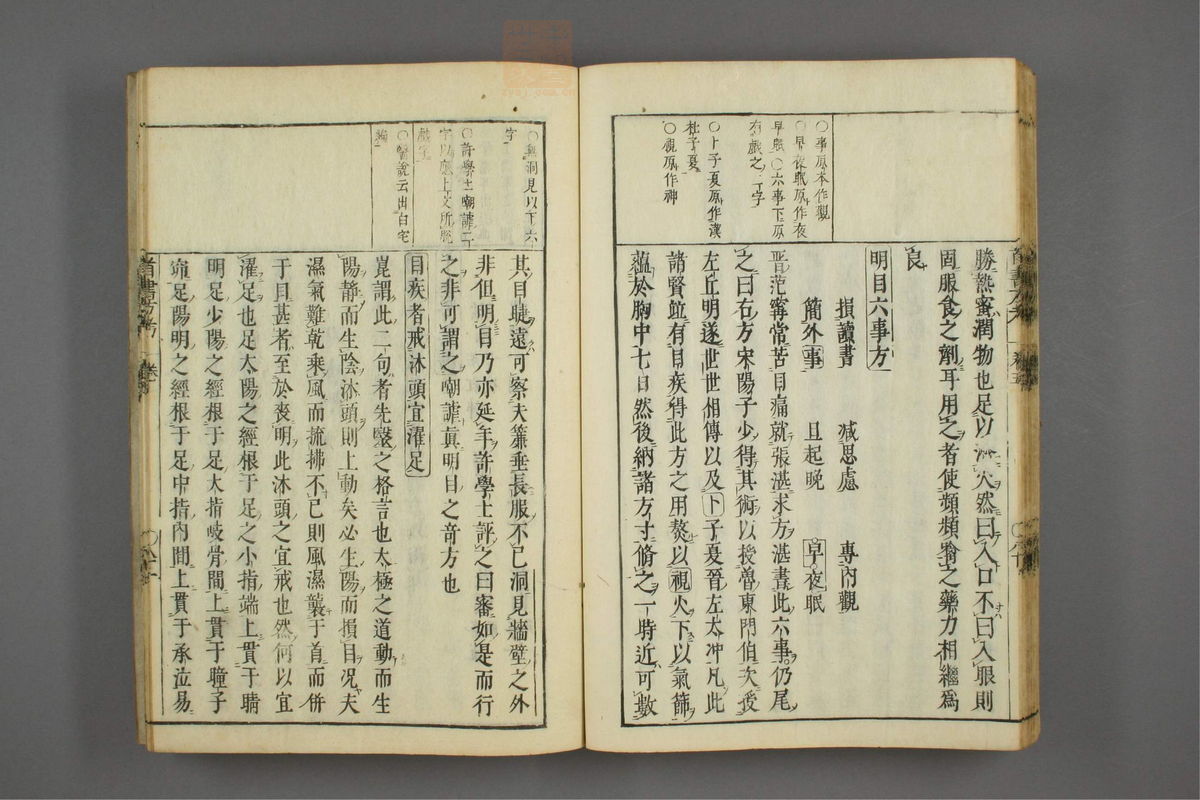 ○事原本作觀
○早夜眠原作夜
早眠○六事下原
有戲之二字
○卜子夏原作漢
杜子夏
○視原作神
勝熱蜜潤物也足以淋火然曰入口不曰入眼則
固服食之劑耳用之者使頻頻嚼之藥力相繼爲
良
明目六事方
損讀書　減思慮　專內觀
簡外事　且起晚　早夜眠
晉范寗常苦目痛就張湛求方湛書此六事仍尾
之曰右方宋陽子少得其術以授魯東門伯次授
左丘明遂世世相傳以及卜子夏晉左太冲凡此
諸賢竝有目疾得此方之用熬以視火下以氣篩
蘊於胸中七日然後納諸方寸脩之一時近可數
○與洞見以下六
字
○許學士嘲謔二
字以應上文所脫
戲字
○醫說云出白宅
編
其目睫遠可察夫箠垂長服不已洞見牆壁之外
非但明目乃亦延年許學士評之曰審如是而行
之非可謂之嘲謔眞明目之奇方也
目疾者戒沐頭宜濯足
崑謂此二句者先醫之格言也太極之道動而生
陽靜而生陰沐頭則上動矣必生陽而損目况夫
濕氣難乾乘風而梳拂不已則風濕襲于首而併
于目甚者至於喪明此沐頭之宜戒也然何以宜
濯足也足太陽之經根于足之小指端上貫于睛
明足少陽之經根于足大指岐骨間上貫于瞳子
窌足陽明之經根于足中指內間上貫于承泣易